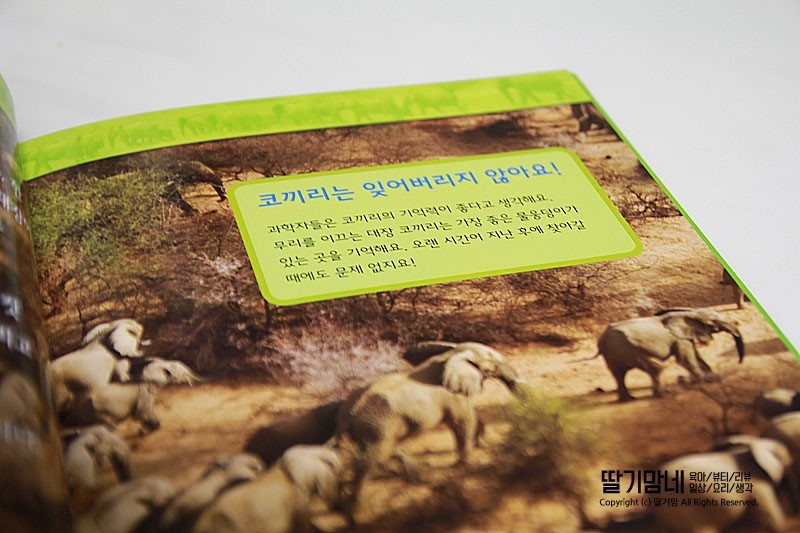 코끼리는 잊어버리지 않아요!
과학자들은 코끼리의 기억력이 좋다고 생각해요.
무리를 이끄는 대장 코끼리는 가장 좋은 물웅덩이가
있는 곳을 기억해요. 오랜 시간이 지난 후에 찾아갈
때에도 문제 없지요!
딸기맘네 육아/뷰티/리뷰
일상/요리/생각
Copyright (c) 딸기맘 All Rights Reserved.